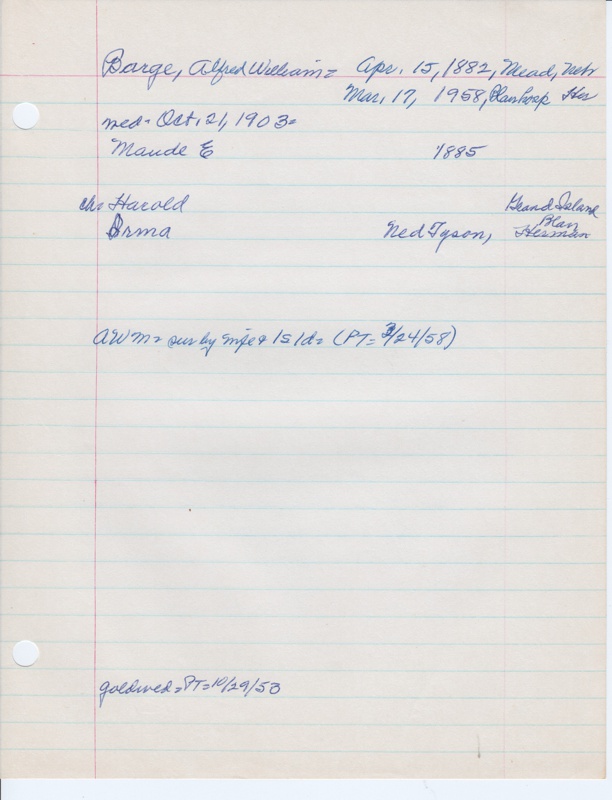 Barge, Alfred William = Apr. 15, 1882, Mead, Neb
Mar. 17, 1958, Blair hosp Her
wed = Oct. 21, 1903 =
Maude E 1885
ch = Harold Grand Island
Blair
Irma Ned Tyson, Herman
AWM = sur by wife & 1s 1d = (PT = 3/24/58)
goldwed = PT = 10/29/53